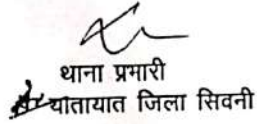 थाना प्रभारी
यातायात जिला सिवनी